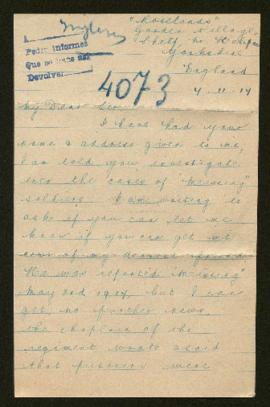 Inglés
"Roselands"
Garden Village
Shelf Nr Halifax
Yorkshire
England
A
Pedir informes
Que no haga más
Devolver
4073
My Dear Sir,
I have had your
name & address given to me,
am told you investigate
into the cases of "missing"
soldiers. I am writing to
ask if you can let me
know if you can get me
news of my
He was reported "missing"
May 3rd 1917, but I can
get no further news
the chaplain of the
regiment wrote & said
that prisoners were